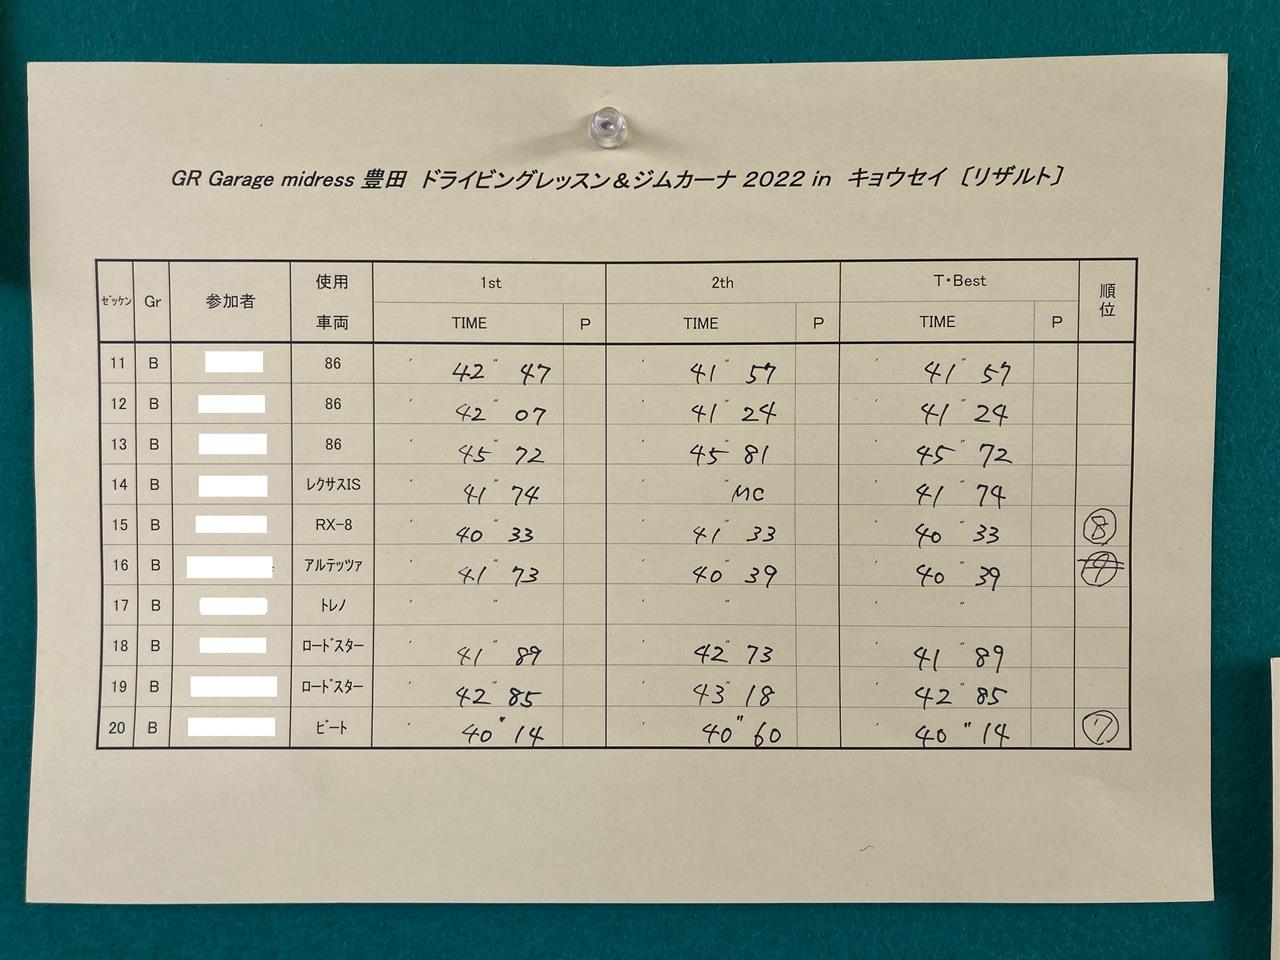 GR Garage midress 豊田 ドライビングレッスン＆ジムカーナ 2022 in キョウセイ 〔リザルト〕
ｾﾞｯｹﾝ Gr 参加者 使用車両 1st 2th T・Best 順位
TIME P TIME P TIME P
11 B 86 ' 42" 47 ' 41" 57 ' 41" 57
12 B 86 ' 42" 07 ' 41" 24 ' 41" 24
13 B 86 ' 45" 72 ' 45" 81 ' 45" 72
14 B ﾚｸｻｽIS ' 41" 74 ' " MC ' 41" 74
15 B RX-8 ' 40" 33 ' 41" 33 ' 40" 33 ⑧
16 B ｱﾙﾃｯﾂｧ ' 41" 73 ' 40" 39 ' 40" 39
17 B ﾄﾚﾉ ' " ' " ' "
18 B ﾛｰﾄﾞｽﾀｰ ' 41" 89 ' 42" 73 ' 41" 89
19 B ﾛｰﾄﾞｽﾀｰ ' 42" 85 ' 43" 18 ' 42" 85
20 B ﾋﾞｰﾄ ' 40" 14 ' 40" 60 ' 40" 14 ⑦